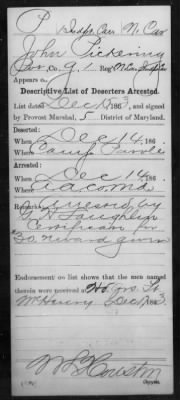 P Indpt. Cav. N. Car
John Pickering
Pvt Co. G. 1 Reg't
Appears on
Descriptive List of Deserters Arrested.
List dated Dec 17, 1863, and signed
by Provost Marshal, 5 District of Maryland.
Deserted:
When Dec 14, 186
Where Camp Parole
Arrested:
When Dec 14, 186
Where
Remarks: Arrested by
Laughlin
Certificate for
30. reward given
Endorsement on list shows that the men named
therein were received at Hd. Qrs. Ft.
McHenry Dec 17, 1863
Houston
Copyist.